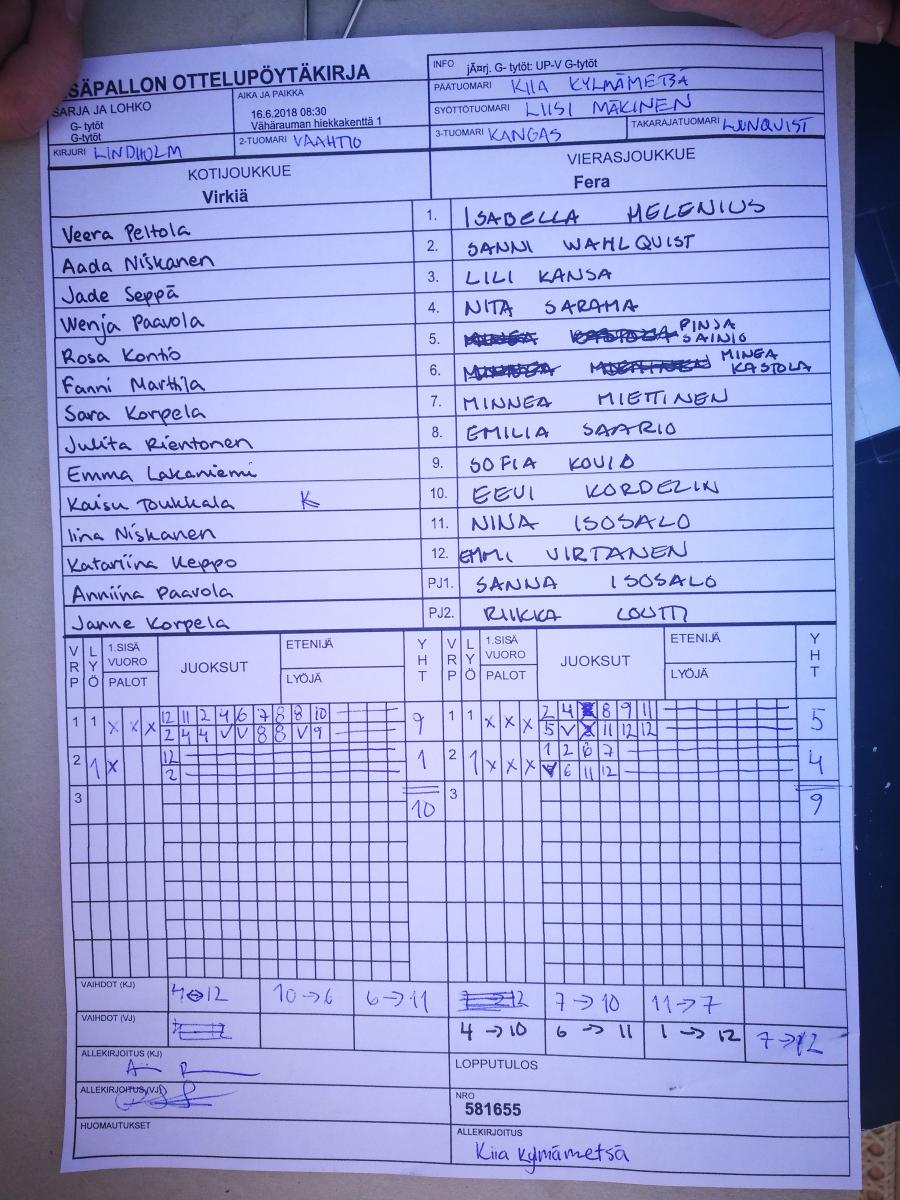 SÄPALLON OTTELUPÖYTÄKIRJA
SARJA JA LOHKO
G- tytöt
G-tytöt
AIKA JA PAIKKA
16.6.2018 08:30
Vähärauman hiekkakenttä 1
INFO jÃ¤rj. G- tytöt: UP-V G-tytöt
PÄÄTUOMARI KIIA KYLMÄMETSÄ
SYÖTTÖTUOMARI LIISI MÄKINEN
KIRJURI LINDHOLM
2-TUOMARI VAAHTIO
3-TUOMARI KANGAS
TAKARAJATUOMARI
KOTIJOUKKUE
Virkiä
VIERASJOUKKUE
Fera
Veera Peltola 1. ISABELLA HELENIUS
Aada Niskanen 2. SANNI WAHLQUIST
Jade Seppä 3. LILI KANSA
Wenja Paavola 4. NITA SARAMA
Rosa Kontio 5. PINJA SAINIO
Fanni Marttila 6. MINEA KASTOLA
Sara Korpela 7. MINNEA MIETTINEN
Julita Rientonen 8. EMILIA SAARIO
Emma Lakaniemi 9. SOFIA KOUIO
Kaisu Toukkala K 10. EEVI KORDELIN
Iina Niskanen 11. NINA ISOSALO
Katariina Keppo 12. EMMI VIRTANEN
Anniina Paavola PJ1. SANNA ISOSALO
Janne Korpela PJ2. RIIKKA LOUTTI
VRP LYÖ 1.SISÄ VUORO PALOT JUOKSUT ETENIJÄ LYÖJÄ YHT VRP LYÖ 1.SISÄ VUORO PALOT JUOKSUT ETENIJÄ LYÖJÄ YHT
1 1 x x x 12 11 2 4 6 7 8 8 10 9 1 1 x x x 2 4 8 9 11 5
2 4 4 V V 8 8 V 9 5 V 11 12 12
2 1 x 12 1 2 1 x x x 1 2 6 7 4
2 6 11 12
3 10 3 9
VAIHDOT (KJ) 4↔12 10→6 6→11 7→10 11→7
VAIHDOT (VJ) 4→10 6→11 1→12 7→12
ALLEKIRJOITUS (KJ)
LOPPUTULOS
ALLEKIRJOITUS(VJ)
NRO
581655
HUOMAUTUKSET
ALLEKIRJOITUS
Kiia Kylmämetsä